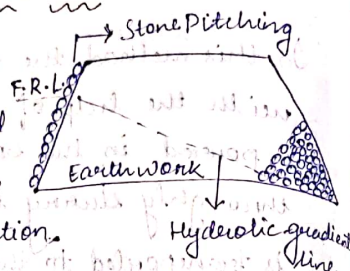 Stone Pitching.
F.R.L.
Earthwork
tion.
Hyderolic gradient
line